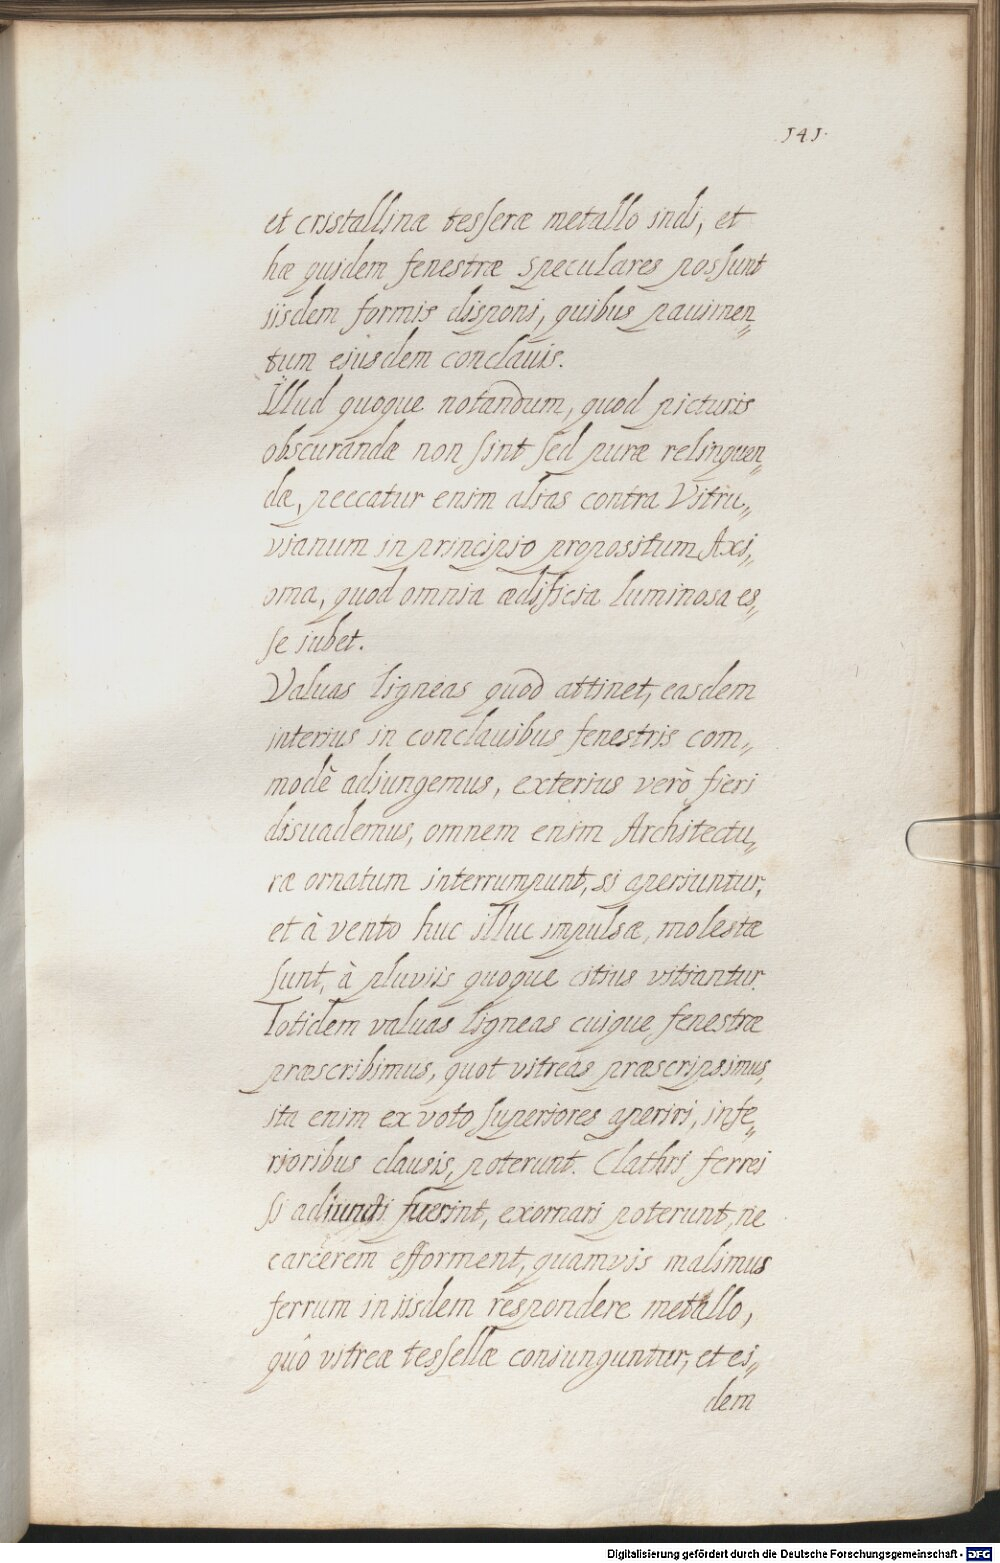 141.
et cristallinæ tesseræ metallo indi, et
hæ quidem fenestræ speculares possunt
iisdem formis disponi, quibus pauimen„
tum ejusdem conclauis.
Illud quoque notandum, quod picturis
obscurandæ non sint sed puræ relinquen„
dæ, peccatur enim alias contra Vitru„
vianum in principio propositum Axi„
oma, quod omnia ædificia luminosa es„
se iubet.
Valuas ligneas quod attinet, easdem
interius in conclauibus fenestris com„
modè adiungemus, exterius verò fieri
disuademus, omnem enim Architectu„
ræ ornatum interrumpunt, si aperiuntur,
et à vento huc illuc impulsæ, molestæ
sunt, à pluviis quoque citius vitiantur.
Totidem valuas ligneas cuique fenestræ
præscribimus, quot vitreas præscripsimus,
ita enim ex voto superiores aperiri, infe„
rioribus clausis, poterunt. Clathri ferrei
si adiuncti fuerint, exornari poterunt, ne
carcerem efforment, quamvis malimus
ferrum in iisdem respondere metallo,
quô vitreæ tessellæ coniunguntur, et ei„
dem
Digitalisierung gefördert durch die Deutsche Forschungsgemeinschaft - DFG